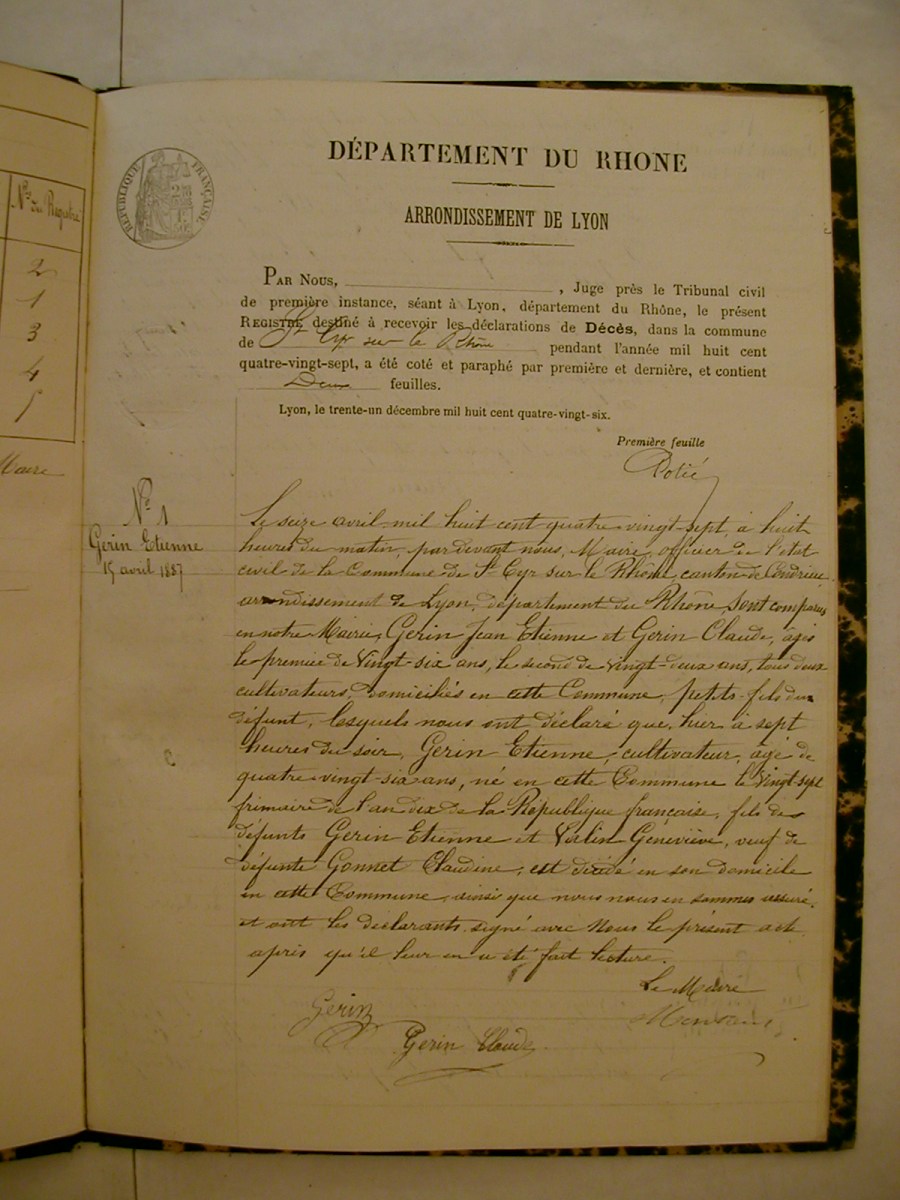 Nos du Registre
2
1
3
4
5
Maire
RÉPUBLIQUE FRANÇAISE
DÉPARTEMENT DU RHONE
ARRONDISSEMENT DE LYON
PAR NOUS, , Juge près le Tribunal civil
de première instance, séant à Lyon, département du Rhône, le présent
REGISTRE destiné à recevoir les déclarations de Décès, dans la commune
de St Cyr sur le Rhône pendant l'année mil huit cent
quatre-vingt-sept, a été coté et paraphé par première et dernière, et contient
Deux feuilles.
Lyon, le trente-un décembre mil huit cent quatre-vingt-six.
Première feuille
No 1
Gerin Etienne
15 avril 1887
Le seize avril mil huit cent quatre vingt-sept, à huit
heures du matin, par devant nous, Maire, officier de l'état
civil de la Commune de St Cyr sur le Rhône, canton de Condrieu,
arrondissement de Lyon, département du Rhône, Sont comparus
en notre Mairie, Gerin Jean Etienne et Gerin Claude, âgés
le premier de vingt-six ans, le second de vingt-deux ans, tous deux
cultivateurs, domiciliés en cette Commune, petits-fils du
défunt, lesquels nous ont déclaré que, hier à sept
heures du soir, Gerin Etienne, cultivateur, âgé de
quatre-vingt-six ans, né en cette Commune le vingt-sept
frimaire de l'an dix de la République française, fils des
défunts Gerin Etienne et Geneviève, veuf de
défunte Gonnet Claudine, est décédé en son domicile
en cette Commune, ainsi que nous nous en sommes assuré,
et ont les déclarants signé avec Nous le présent acte
après qu'il leur en a été fait lecture.
Le Maire
Gerin
Gerin Claude